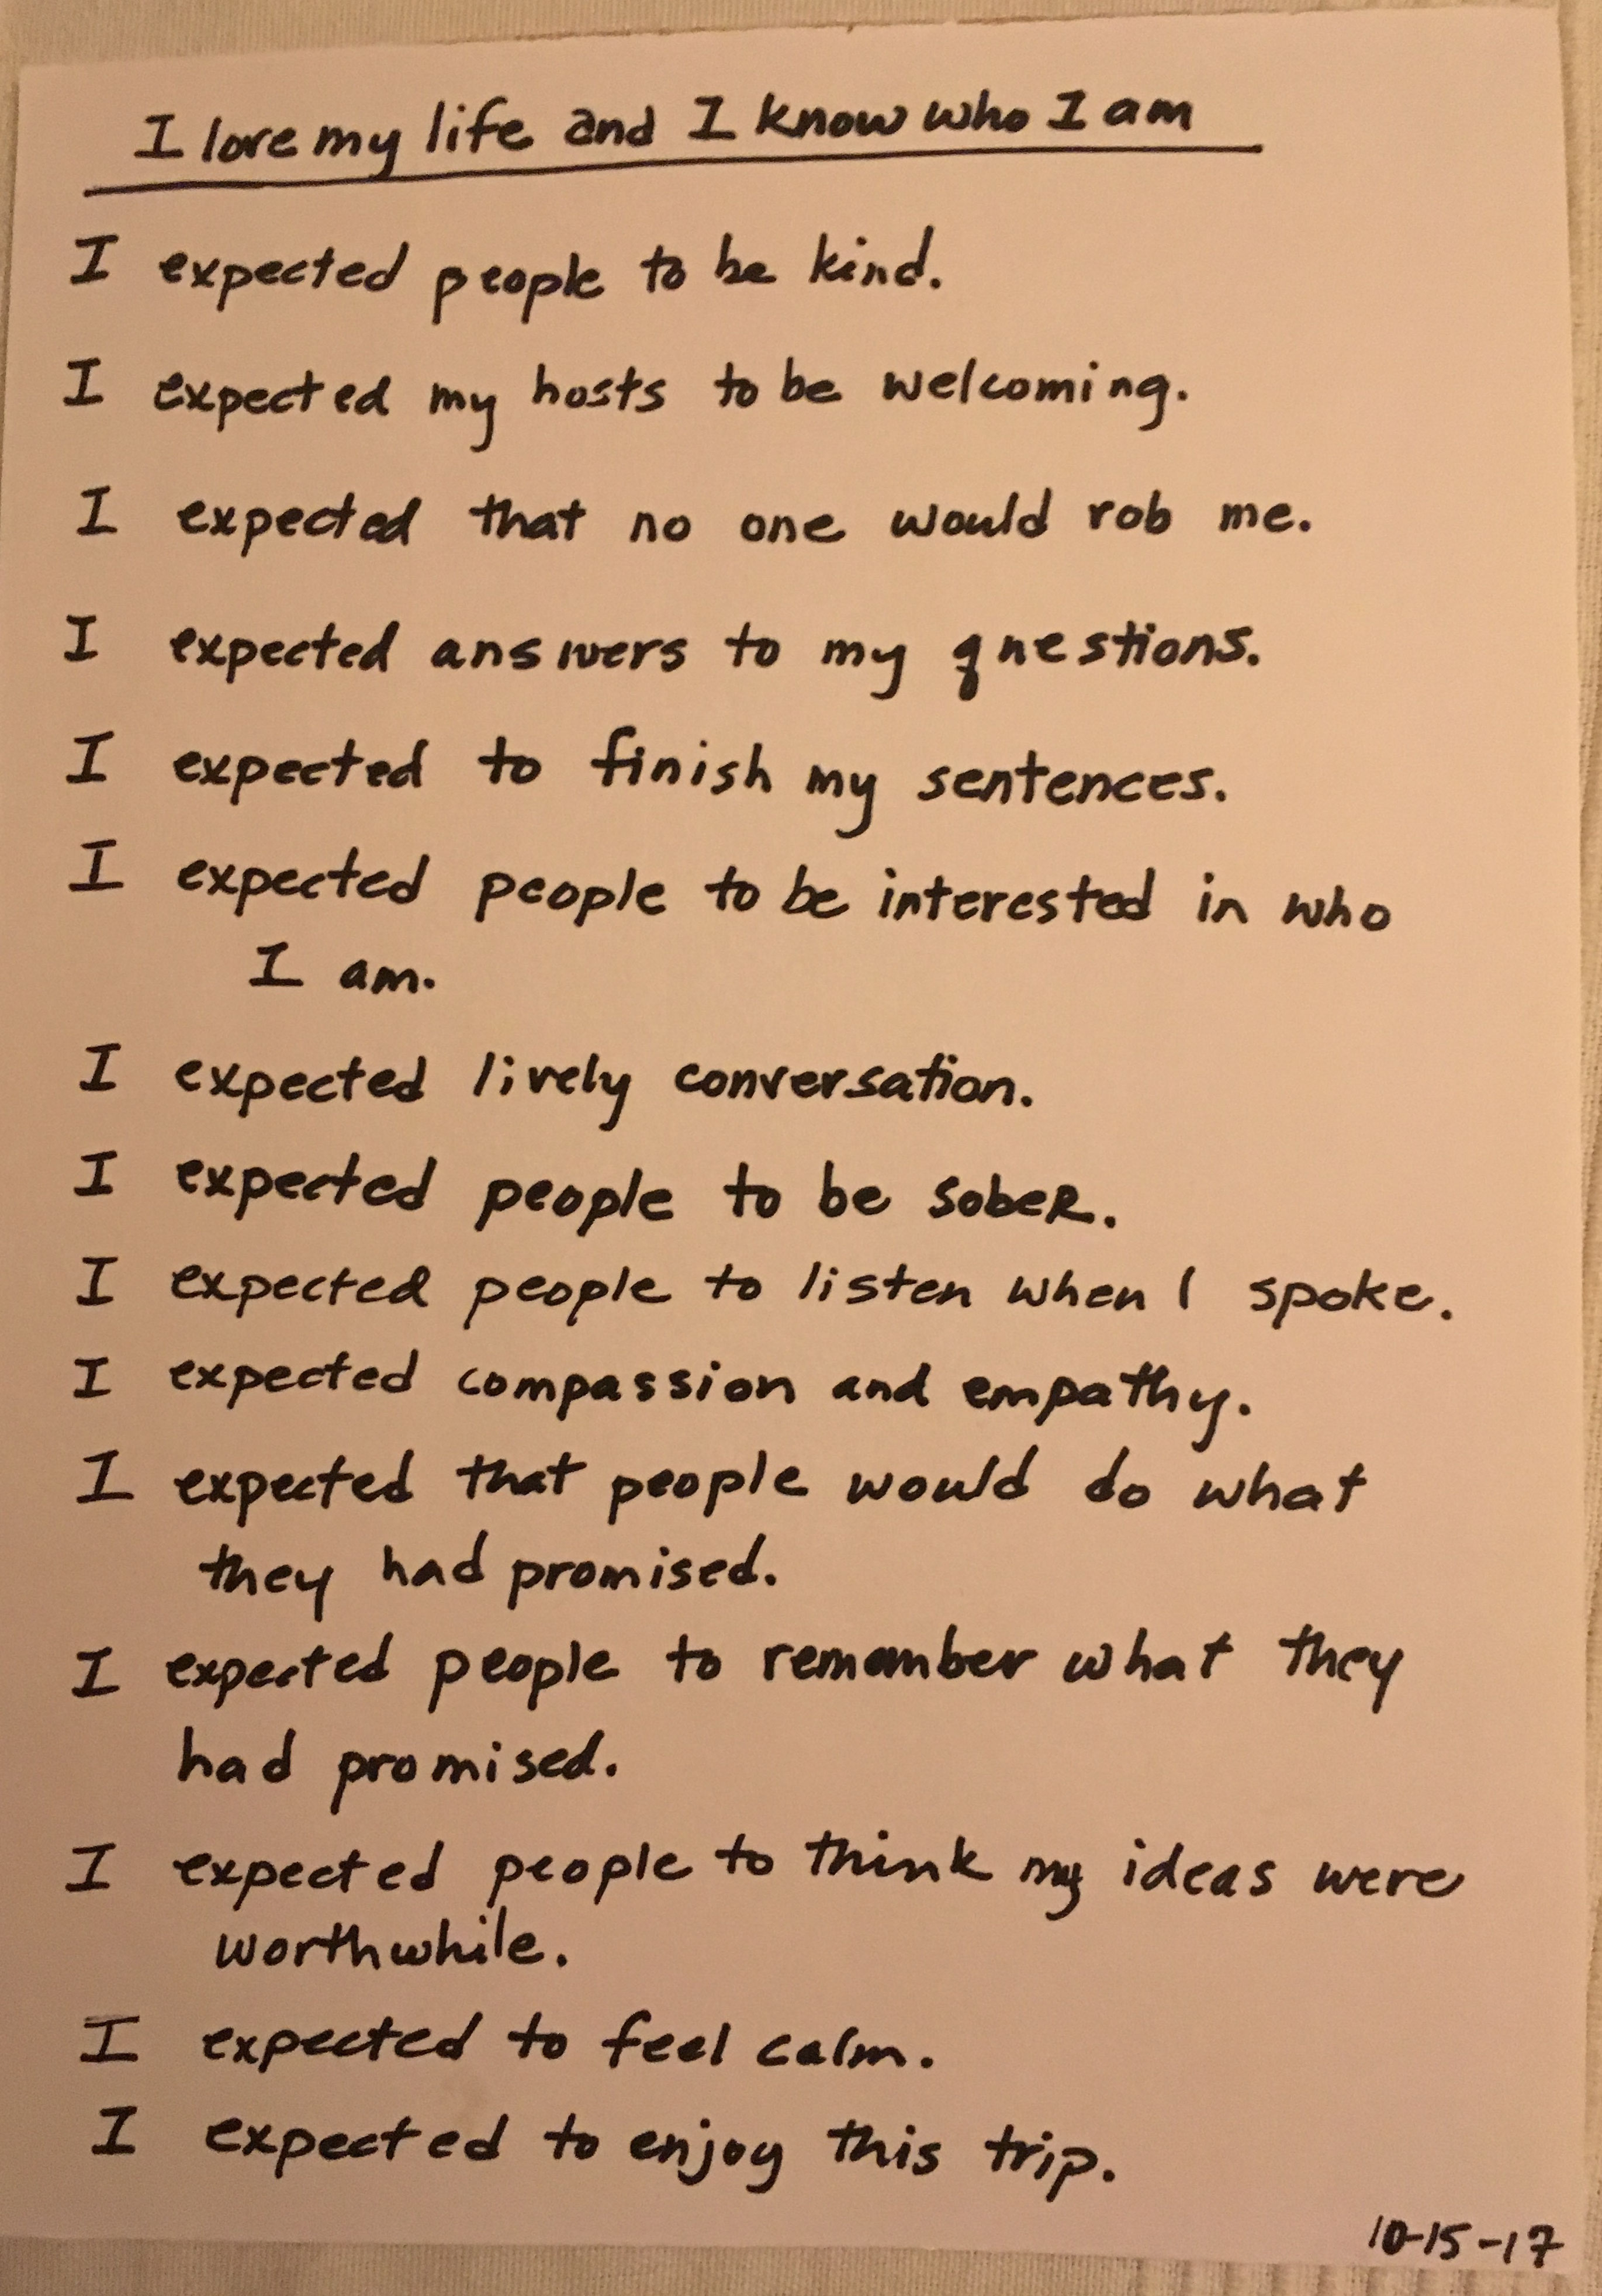 I love my life and I know who I am
I expected people to be kind.
I expected my hosts to be welcoming.
I expected that no one would rob me.
I expected answers to my questions.
I expected to finish my sentences.
I expected people to be interested in who
I am.
I expected lively conversation.
I expected people to be sober.
I expected people to listen when I spoke.
I expected compassion and empathy.
I expected that people would do what
they had promised.
I expected people to remember what they
had promised.
I expected people to think my ideas were
worthwhile.
I expected to feel calm.
I expected to enjoy this trip.
10-15-17